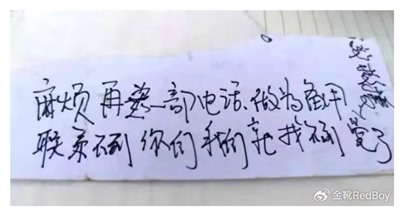 麻烦再买一部电话.做为备用
联系不到你们我们就找不到曼了
金靴RedBoy